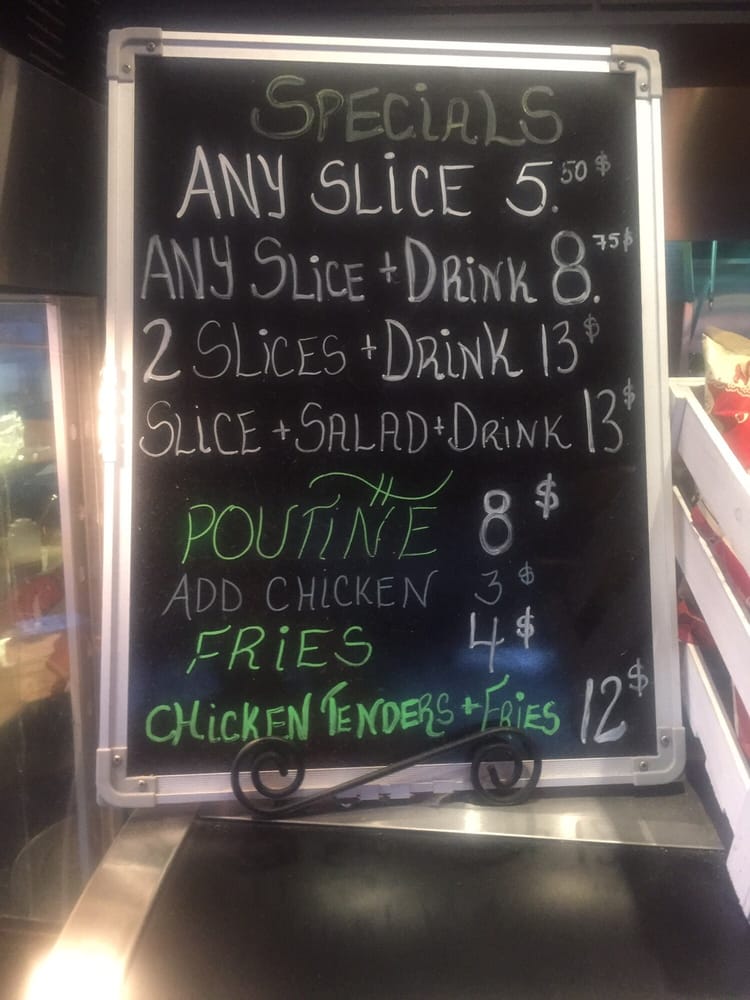 SPECiALS
ANY SLiCE 5.50$
ANY SLiCE + DRiNK 8.75$
2 SLiCES + DRiNK 13$
SLiCE + SALAD + DRiNK 13$
POUTiNE 8$
ADD CHiCKEN 3$
FRiES 4$
CHiCKEN TENDERS + FRiES 12$